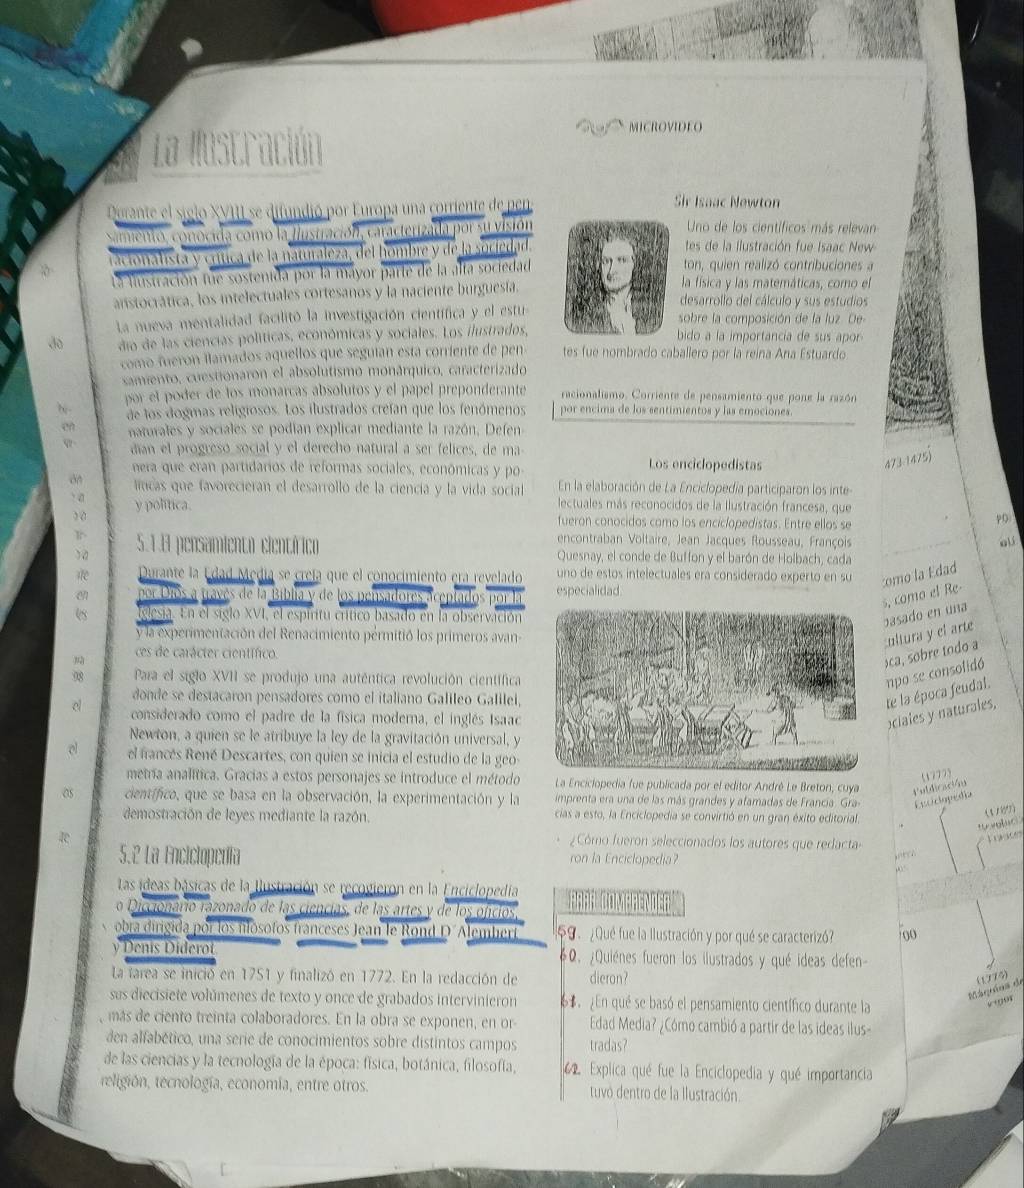 La Ilustración
Durante el siglo XVIII se difundió por Europa una corriente de pen-
samiento, conocida como la Ilustración, caracterizada por su visión
racionalista y crítica de la naturaleza, del hombre y de la sociedad.
La Ilustración fue sostenida por la mayor parte de la alta sociedad
aristocrática, los intelectuales cortesanos y la naciente burguesía.
La nueva mentalidad facilitó la investigación científica y el estu-
dio de las ciencias políticas, económicas y sociales. Los ilustrados,
como fueron llamados aquellos que seguían esta corriente de pen-
samiento, cuestionaron el absolutismo monárquico, caracterizado
por el poder de los monarcas absolutos y el papel preponderante
de los dogmas religiosos. Los ilustrados creían que los fenómenos
naturales y sociales se podían explicar mediante la razón. Defen-
dían el progreso social y el derecho natural a ser felices, de ma-
nera que eran partidarios de reformas sociales, económicas y po-
líticas que favorecieran el desarrollo de la ciencia y la vida social
y política.
5.1 El pensamiento científico
Durante la Edad Media se creía que el conocimiento era revelado
por Dios a través de la Biblia y de los pensadores aceptados por la
Iglesia. En el siglo XVI, el espíritu crítico basado en la observación
y la experimentación del Renacimiento permitió los primeros avan-
ces de carácter científico.
Para el siglo XVII se produjo una auténtica revolución científica
donde se destacaron pensadores como el italiano Galileo Galilei,
considerado como el padre de la física moderna, el inglés Isaac
Newton, a quien se le atribuye la ley de la gravitación universal, y
el francés René Descartes, con quien se inicia el estudio de la geo-
metría analítica. Gracias a estos personajes se introduce el método
científico, que se basa en la observación, la experimentación y la
demostración de leyes mediante la razón.
5.2 La Enciclopedia
Las ideas básicas de la Ilustración se recogieron en la Enciclopedia
o Diccionario razonado de las ciencias, de las artes y de los oficios,
obra dirigida por los filósofos franceses Jean le Rond D'Alembert
y Denis Diderot.
La tarea se inició en 1751 y finalizó en 1772. En la redacción de
sus diecisiete volúmenes de texto y once de grabados intervinieron
más de ciento treinta colaboradores. En la obra se exponen, en or-
den alfabético, una serie de conocimientos sobre distintos campos
de las ciencias y la tecnología de la época: física, botánica, filosofía,
religión, tecnología, economía, entre otros.
MICROVIDEO
Sir Isaac Newton
Uno de los científicos más relevan-
tes de la Ilustración fue Isaac New-
ton, quien realizó contribuciones a
la física y las matemáticas, como el
desarrollo del cálculo y sus estudios
sobre la composición de la luz. De-
bido a la importancia de sus apor-
tes fue nombrado caballero por la reina Ana Estuardo
racionalismo. Corriente de pensamiento que pone la razón
por encima de los sentimientos y las emociones.
Los enciclopedistas
En la elaboración de La Enciclopedia participaron los inte-
lectuales más reconocidos de la Ilustración francesa, que
fueron conocidos como los enciclopedistas. Entre ellos se
encontraban Voltaire, Jean Jacques Rousseau, François
Quesnay, el conde de Buffon y el barón de Holbach; cada
uno de estos intelectuales era considerado experto en su
especialidad.
La Enciclopedia fue publicada por el editor André Le Breton, cuya
imprenta era una de las más grandes y afamadas de Francia. Gra-
cias a esto, la Enciclopedia se convirtió en un gran éxito editorial.
¿Cómo fueron seleccionados los autores que redacta-
ron la Enciclopedia?
PARA COMPRENDER
59. ¿Qué fue la Ilustración y por qué se caracterizó?
60. ¿Quiénes fueron los ilustrados y qué ideas defen-
dieron?
61. ¿En qué se basó el pensamiento científico durante la
Edad Media? ¿Cómo cambió a partir de las ideas ilus-
tradas?
62. Explica qué fue la Enciclopedia y qué importancia
tuvo dentro de la Ilustración.
473-1475)
como la Edad
s, como el Re-
basado en una
cultura y el arte
oca, sobre todo a
mpo se consolidó
te la época feudal,
ociales y naturales,
(1777)
Publicación
Enciclopedia
(1789)
(1775)